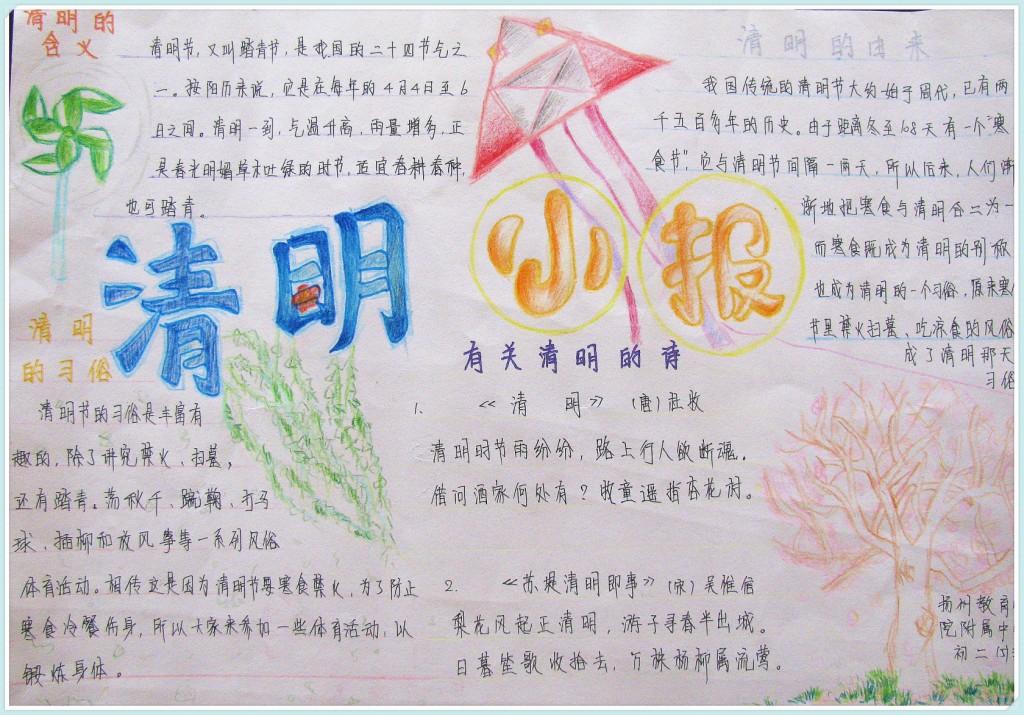 清明的
含义
清明节，又叫踏青节，是我国的二十四节气之
一。按阳历来说，它是在每年的4月4日至6
日之间。清明一到，气温升高，雨量增多，正
是春光明媚草木吐绿的时节，适宜春耕春种，
也可踏青。
清明小报
清明的由来
我国传统的清明节大约始于周代，已有两
千五百多年的历史。由于距离冬至108天有一个"寒
食节"，它与清明节间隔一两天，所以后来，人们渐
渐地把寒食与清明合二为一
而寒食既成为清明的别称
也成为清明的一个习俗，原来寒
节里禁火扫墓、吃凉食的风俗
成了清明那天
习俗
清明
的习俗
清明节的习俗是丰富有
趣的，除了讲究禁火、扫墓，
还有踏青。荡秋千、蹴鞠、打马
球、插柳和放风筝等一系列风俗
体育活动。相传这是因为清明节要寒食禁火，为了防止
寒食冷餐伤身，所以大家来参加一些体育活动，以
锻炼身体。
有关清明的诗
1. 《清 明》 (唐)杜牧
清明时节雨纷纷，路上行人欲断魂。
借问酒家何处有？牧童遥指杏花村。
2. 《苏堤清明即事》(宋)吴惟信
梨花风起正清明，游子寻春半出城。
日暮笙歌收拾去，万株杨柳属流莺。
扬州教育
院附属中
初二(5)